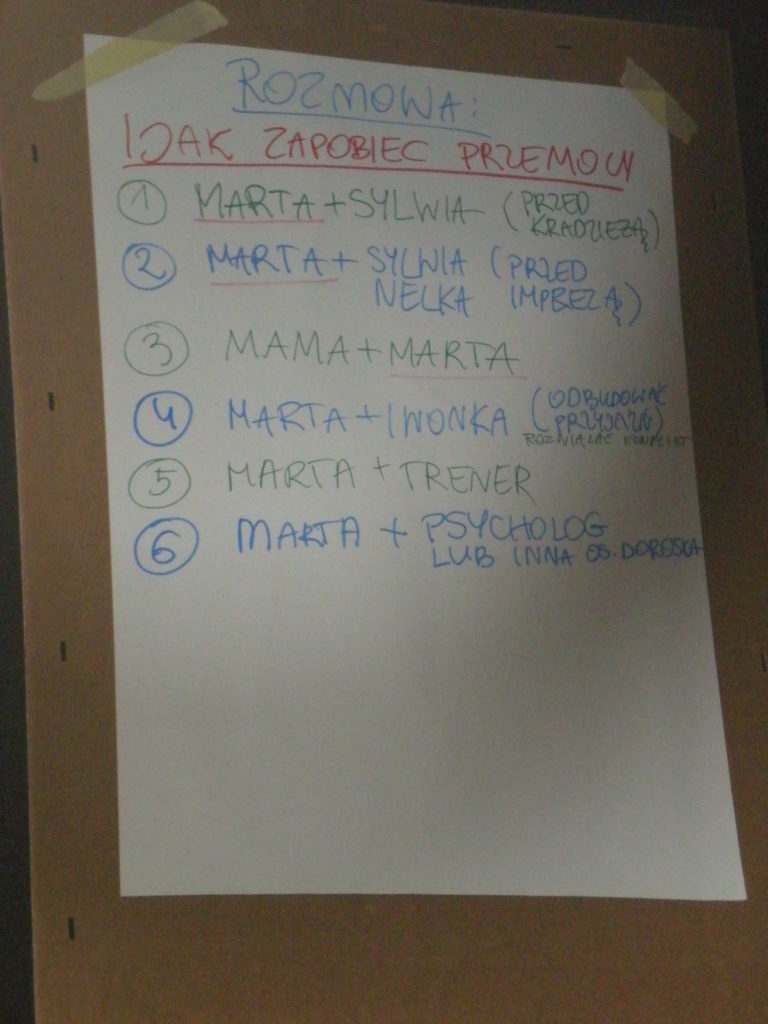 ROZMOWA:
1) JAK ZAPOBIEC PRZEMOCY
1 MARTA + SYLWIA (PRZED
KRADZIEŻĄ)
2 MARTA + SYLWIA (PRZED
NELKA IMPREZĄ)
3 MAMA + MARTA
4 MARTA + IWONKA (ODBUDOWAĆ
PRZYJAŹŃ)
ROZWIĄZAĆ KONFLIKT
5 MARTA + TRENER
6 MARTA + PSYCHOLOG
LUB INNA OS. DOROSŁA